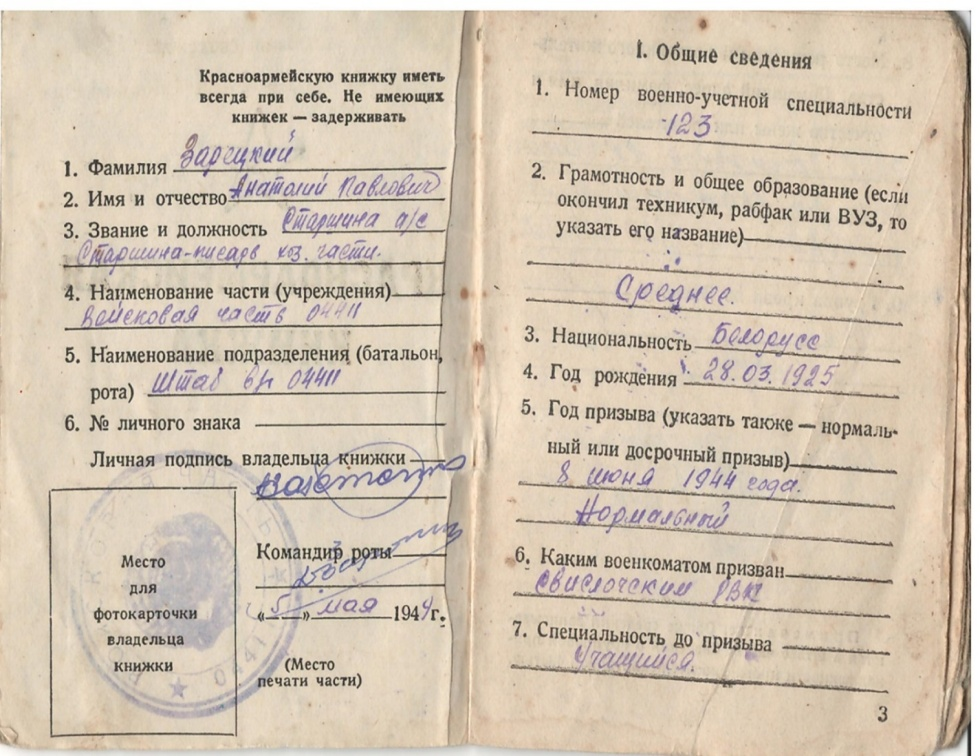 Красноармейскую книжку иметь
всегда при себе. Не имеющих
книжек — задерживать
1. Фамилия Зарецкий
2. Имя и отчество Анатолий Павлович
3. Звание и должность Старшина а/с
Старшина-писарь хоз. части.
4. Наименование части (учреждения)
Войсковая часть 04411
5. Наименование подразделения (батальон,
рота) Штаб в/ч 04411
6. № личного знака
Личная подпись владельца книжки
Командир роты
„5" мая 1944 г.
Место
для
фотокарточки
владельца
книжки
(Место
печати части)
I. Общие сведения
1. Номер военно-учетной специальности
123
2. Грамотность и общее образование (если
окончил техникум, рабфак или ВУЗ, то
указать его название)
Среднее.
3. Национальность Белорусс
4. Год рождения 28.03.1925
5. Год призыва (указать также — нормаль-
ный или досрочный призыв)
8 июня 1944 года.
Нормальный
6. Каким военкоматом призван
Свислочским РВК
7. Специальность до призыва
Учащийся.
3